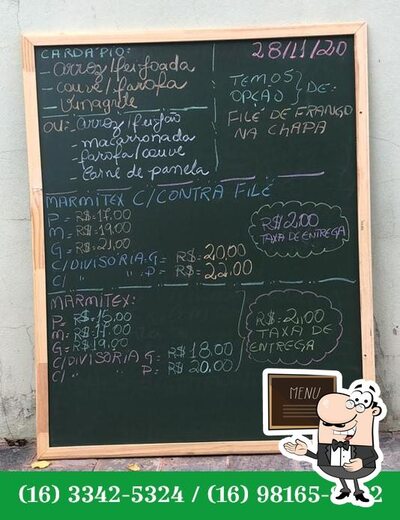 CARDÁPIO:
- arroz/feijoada
- couve/farofa
- vinagrete
28/11/20
TEMOS OPÇÃO DE:
FILÉ DE FRANGO
NA CHAPA
ou: - arroz/feijão
- macarronada
- farofa/couve
- Carne de panela
MARMITEX C/CONTRA FILÉ
P= R$: 17,00
M= R$: 19,00
G= R$: 21,00
C/DIVISÓRIA: G= R$: 20,00
C/ " " P= R$: 22,00
R$ 2,00
TAXA DE ENTREGA
MARMITEX:
P= R$: 15,00
M= R$: 17,00
G= R$: 19,00
C/DIVISÓRIA G= R$ 18,00
C/ " " P= R$ 20,00
R$= 2,00
TAXA DE
ENTREGA
MENU
(16) 3342-5324 / (16) 98165-